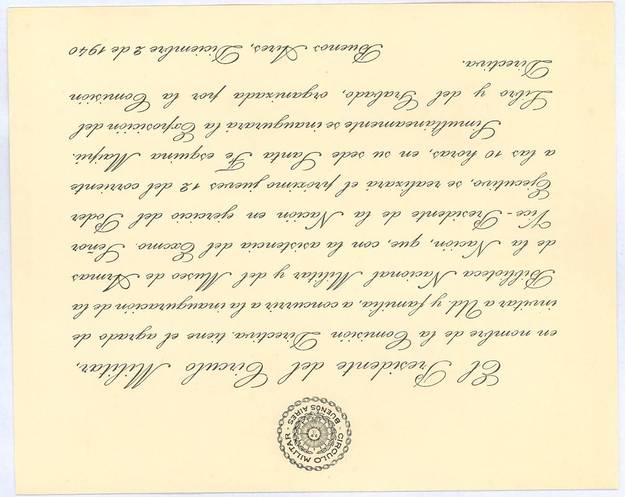 CIRCULO MILITAR
BUENOS AIRES
El Presidente del Circulo Militar,
en nombre de la Comisión Directiva, tiene el agrado de
invitar a Ud. y familia, a concurrir a la inauguración de la
Biblioteca Nacional Militar y del Museo de Armas
de la Nación, que, con la asistencia del Excmo. Señor
Vice-Presidente de la Nación en ejercicio del Poder
Ejecutivo, se realizará el próximo jueves 12 del corriente
a las 10 horas, en su sede Santa Fe esquina Maipú.
Simultáneamente se inaugurará la Exposición del
Libro y del Grabado, organizada por la Comisión
Directiva.
Buenos Aires, Diciembre 2 de 1940